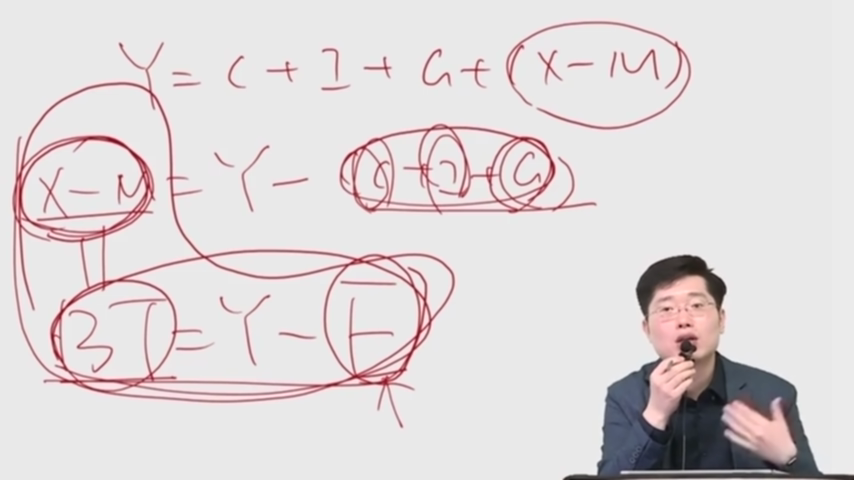 Y = C + I + G + (X - M)
X - M = Y - (C + I + G)
BT = Y - E